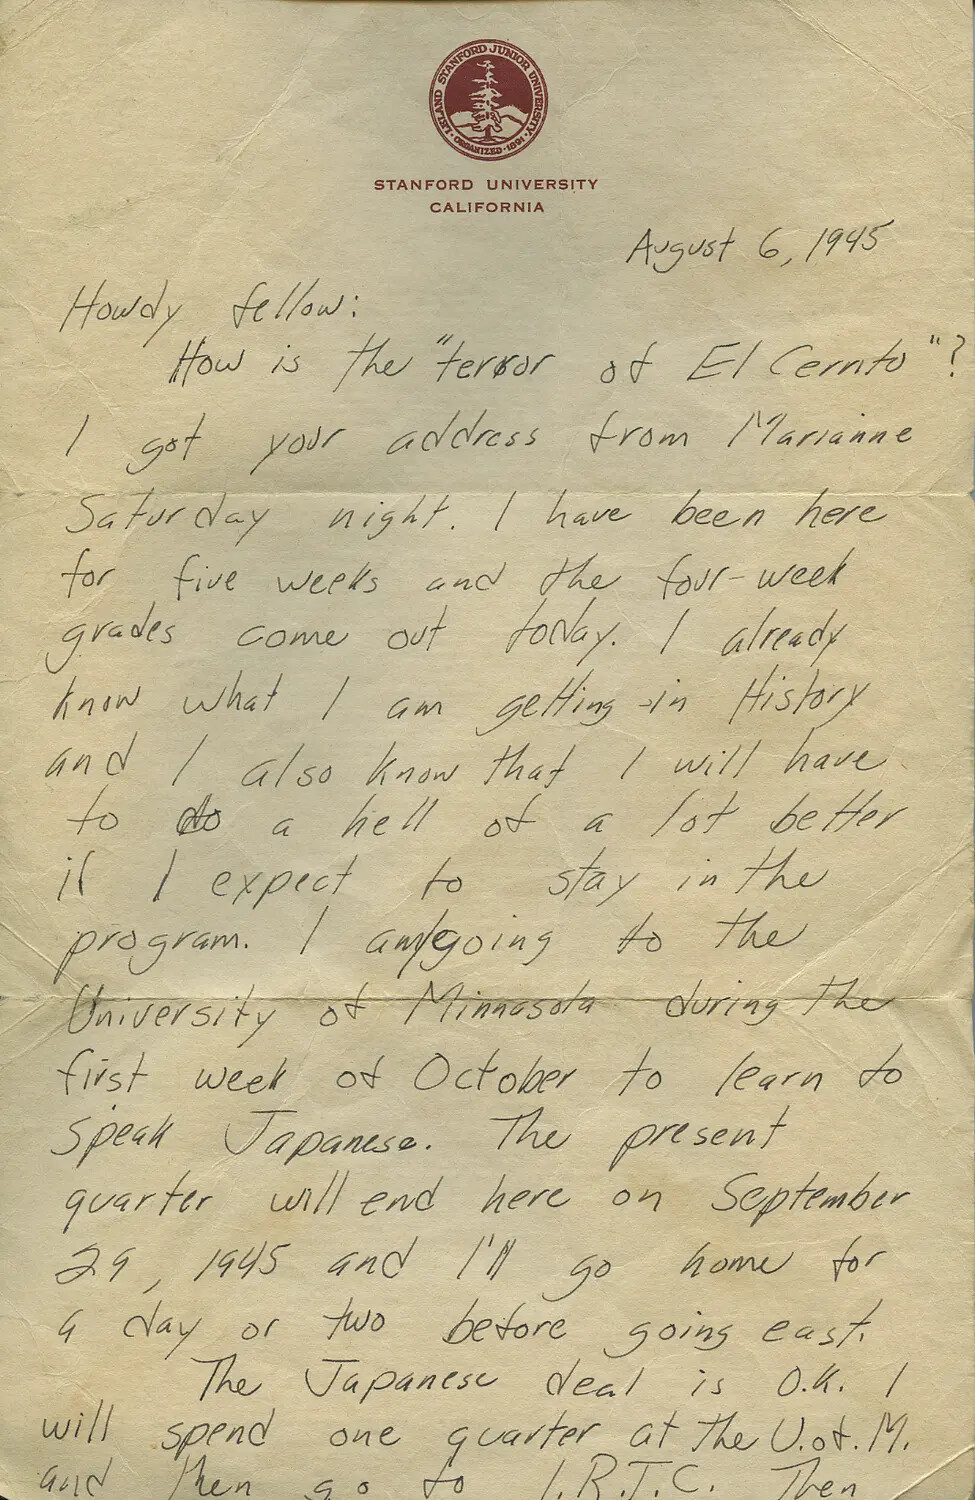 LELAND STANFORD JUNIOR UNIVERSITY
ORGANIZED 1891
STANFORD UNIVERSITY
CALIFORNIA
August 6, 1945
Howdy fellow:
How is the "terror of El Cerrito"?
I got your address from Marianne
Saturday night. I have been here
for five weeks and the four-week
grades come out today. I already
know what I am getting in History
and I also know that I will have
to do a hell of a lot better
if I expect to stay in the
program. I am going to the
University of Minnasota during the
first week of October to learn to
speak Japanese. The present
quarter will end here on September
29, 1945 and I'll go home for
a day or two before going east.
The Japanese deal is O.K. I
will spend one quarter at the U. of. M.
and then go to I.R.T.C. Then